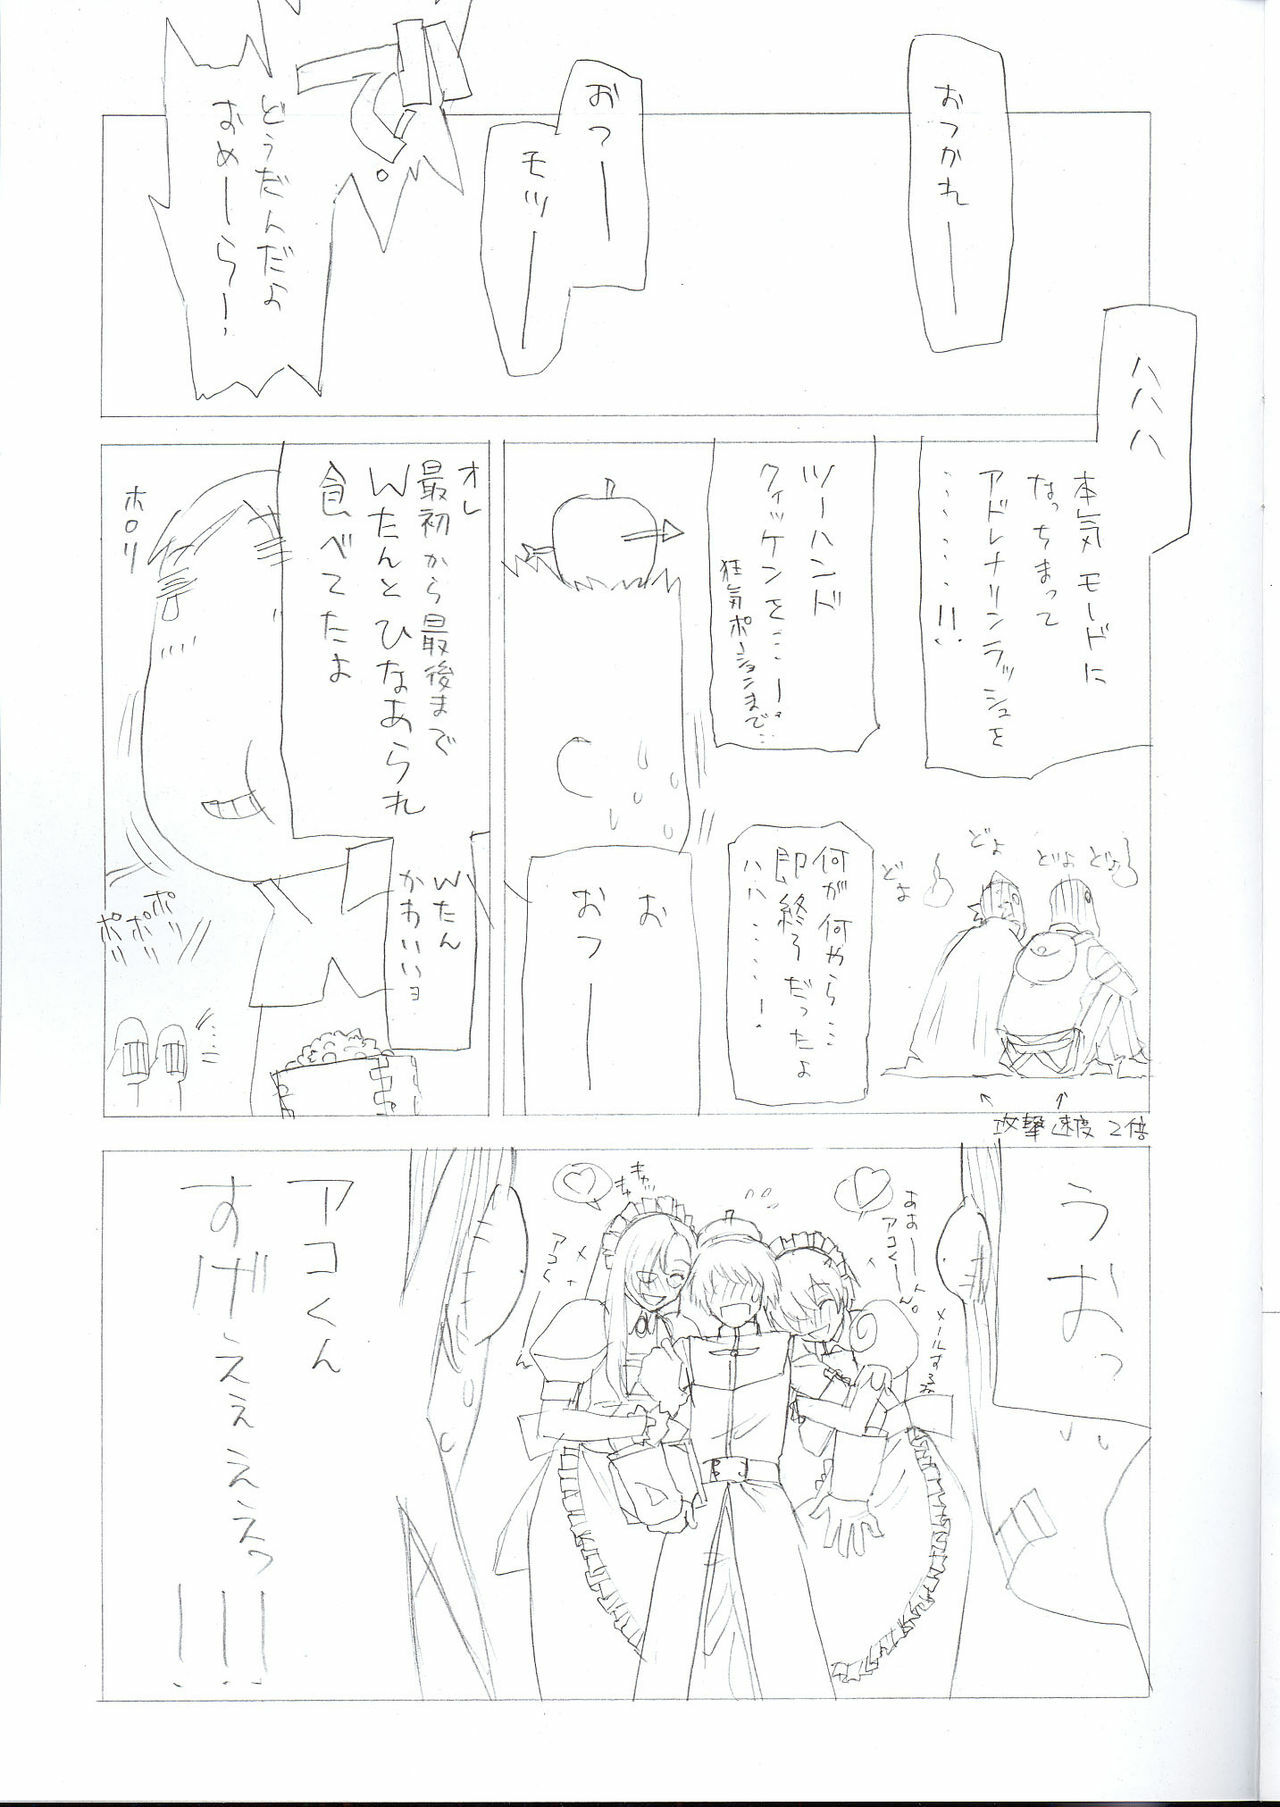 おつかれー
おつー
モツー
で。
どうだんだよ
おめーらー!
ハハハ
本気モードに
なっちまって
アドレナリンラッシュを
…………!!
ツーハンド
クィッケンを……!
狂気ポーションまで…
何が何やら…
即終うだったよ
ハハ……!
どよ
どよ
どよ
どよ
↑攻撃速度2倍
お
おつー
オレ
最初から最後まで
Wたんとひなあられ
食べてたよ
Wたん
かわいいョ
ホロリ
ポリ
ポリ
ポリ
ポリ
うおっ
あおー
アコくーん。
メールするね
キャッ
きゃっ
アコくーん
アコくん
すげぇぇぇぇぇっ
!!!